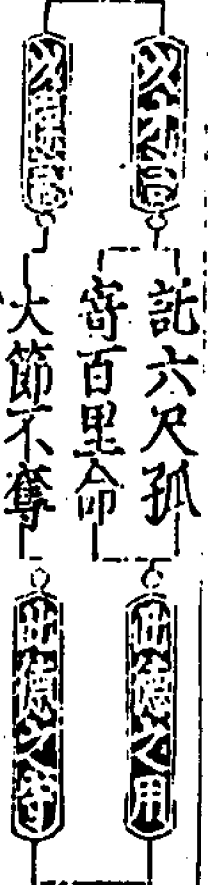 以才言
託六尺孤
寄百里命
此德之用
以言
大節不奪
此德之